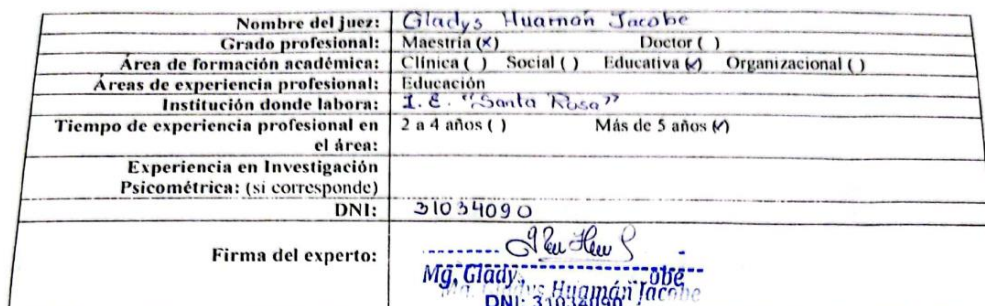 Nombre del juez: Gladys Huamán Jacobe
Grado profesional: Maestría (x) Doctor ( )
Área de formación académica: Clínica ( ) Social ( ) Educativa (x) Organizacional ( )
Áreas de experiencia profesional: Educación
Institución donde labora: I.E. "Santa Rosa"
Tiempo de experiencia profesional en 2 a 4 años ( ) Más de 5 años (x)
el área:
Experiencia en Investigación
Psicométrica: (si corresponde)
DNI: 31034090
Firma del experto:
Mg, Glady obe
Mg. Gladys Huamán Jacobe
DNI: 31034090